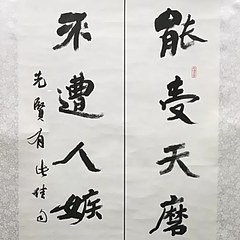 能受天磨
不遭人嫉
先賢有此佳句